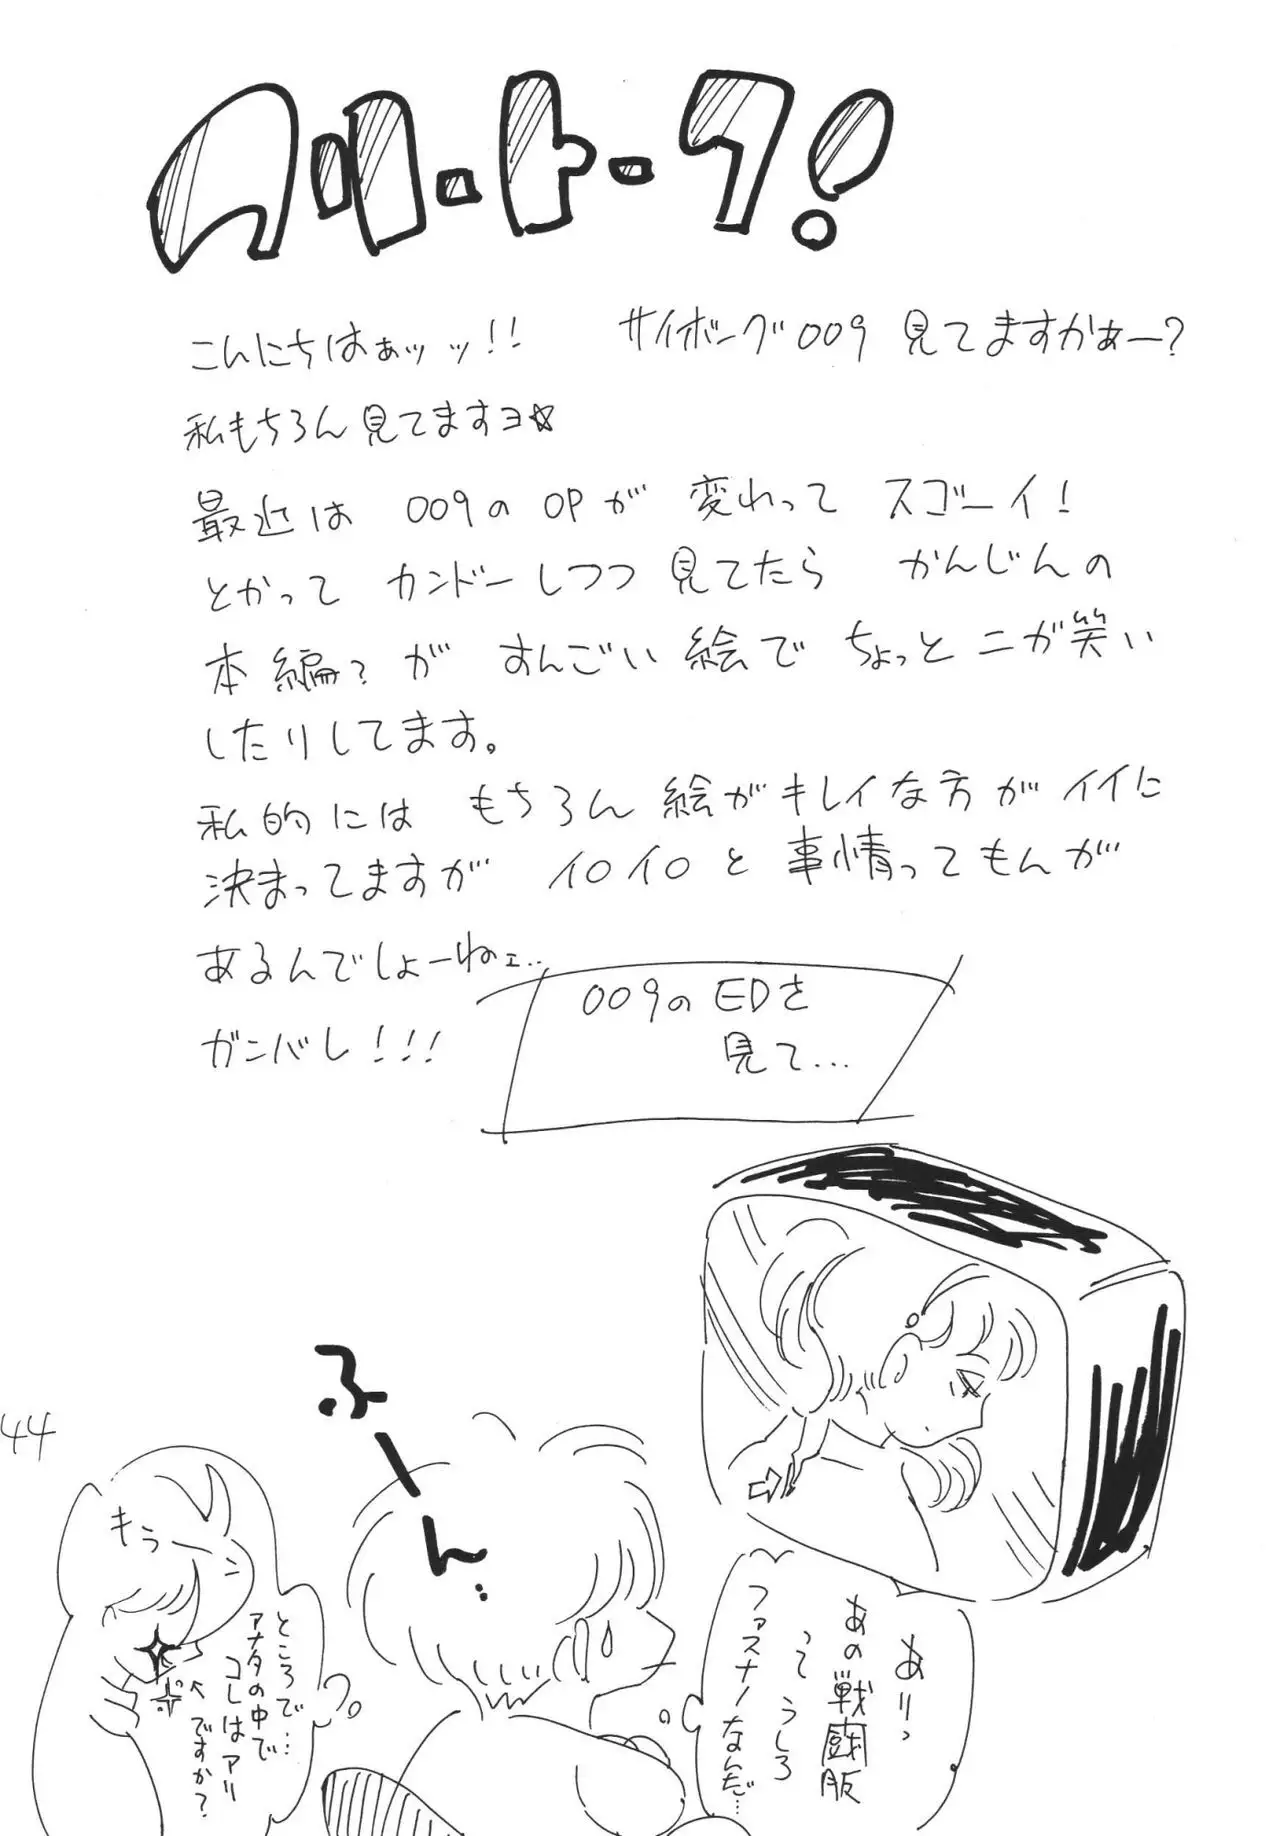 フリートーク!
こんにちはぁッッ!! サイボーグ009 見てますかぁー?
私もちろん見てますヨ☆
最近は 009の OPが 変わって スゴーイ!
とかって カンドーしつつ 見てたら かんじんの
本編?が すんごい絵で ちょっとニガ笑い
したりしてます。
私的には もちろん絵がキレイな方がイイに
決まってますが イロイロと事情ってもんが
あるんでしょーねェ..
ガンバレ!!!
009のEDを
見て...
ふーん..
ありっ
あの戦闘服
って うしろ
ファスナーなんだ…
もぅーっ
ところで…
アナタの中で
コレはアリ
ですか?
44